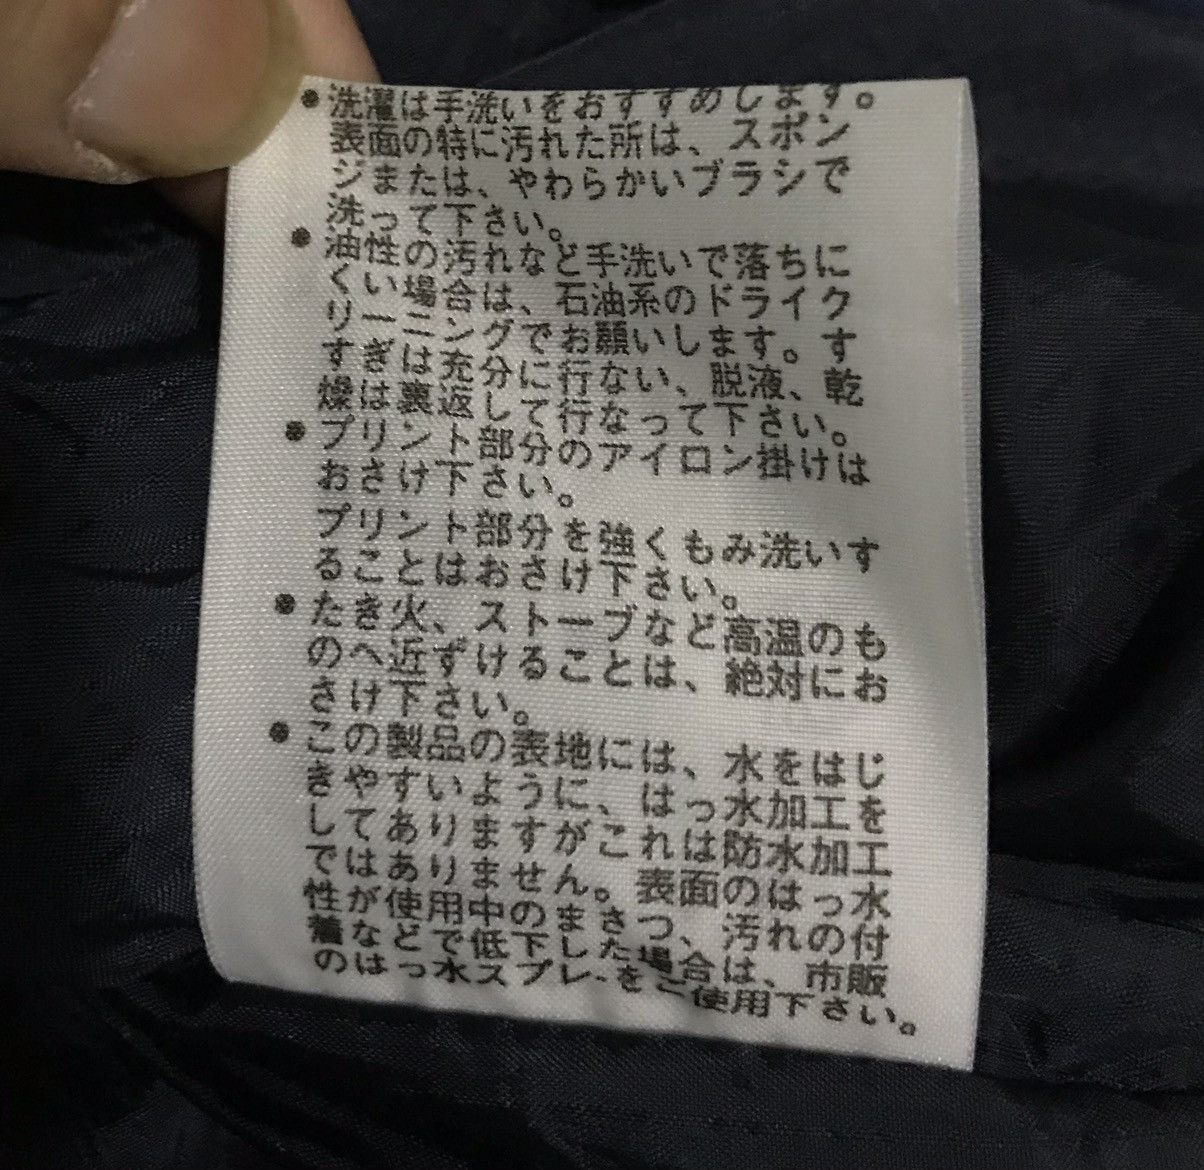 ●洗濯は手洗いをおすすめします。
表面の特に汚れた所は、スポン
ジまたは、やわらかいブラシで
洗って下さい。
●油性の汚れなど手洗いで落ちに
くい場合は、石油系のドライク
リーニングでお願いします。す
すぎは充分に行ない、脱液、乾
燥は裏返して行なって下さい。
●プリント部分のアイロン掛けは
おさけ下さい。
プリント部分を強くもみ洗いす
ることはおさけ下さい。
●たき火、ストーブなど高温のも
のへ近ずけることは、絶対にお
さけ下さい。
●この製品の表地には、水をはじ
きやすいように、はっ水加工を
してありますがこれは防水加工
ではありません。表面のはっ水
性が使用中のまさつ、汚れの付
着などで低下した場合は、市販
のはっ水スプレーをご使用下さい。